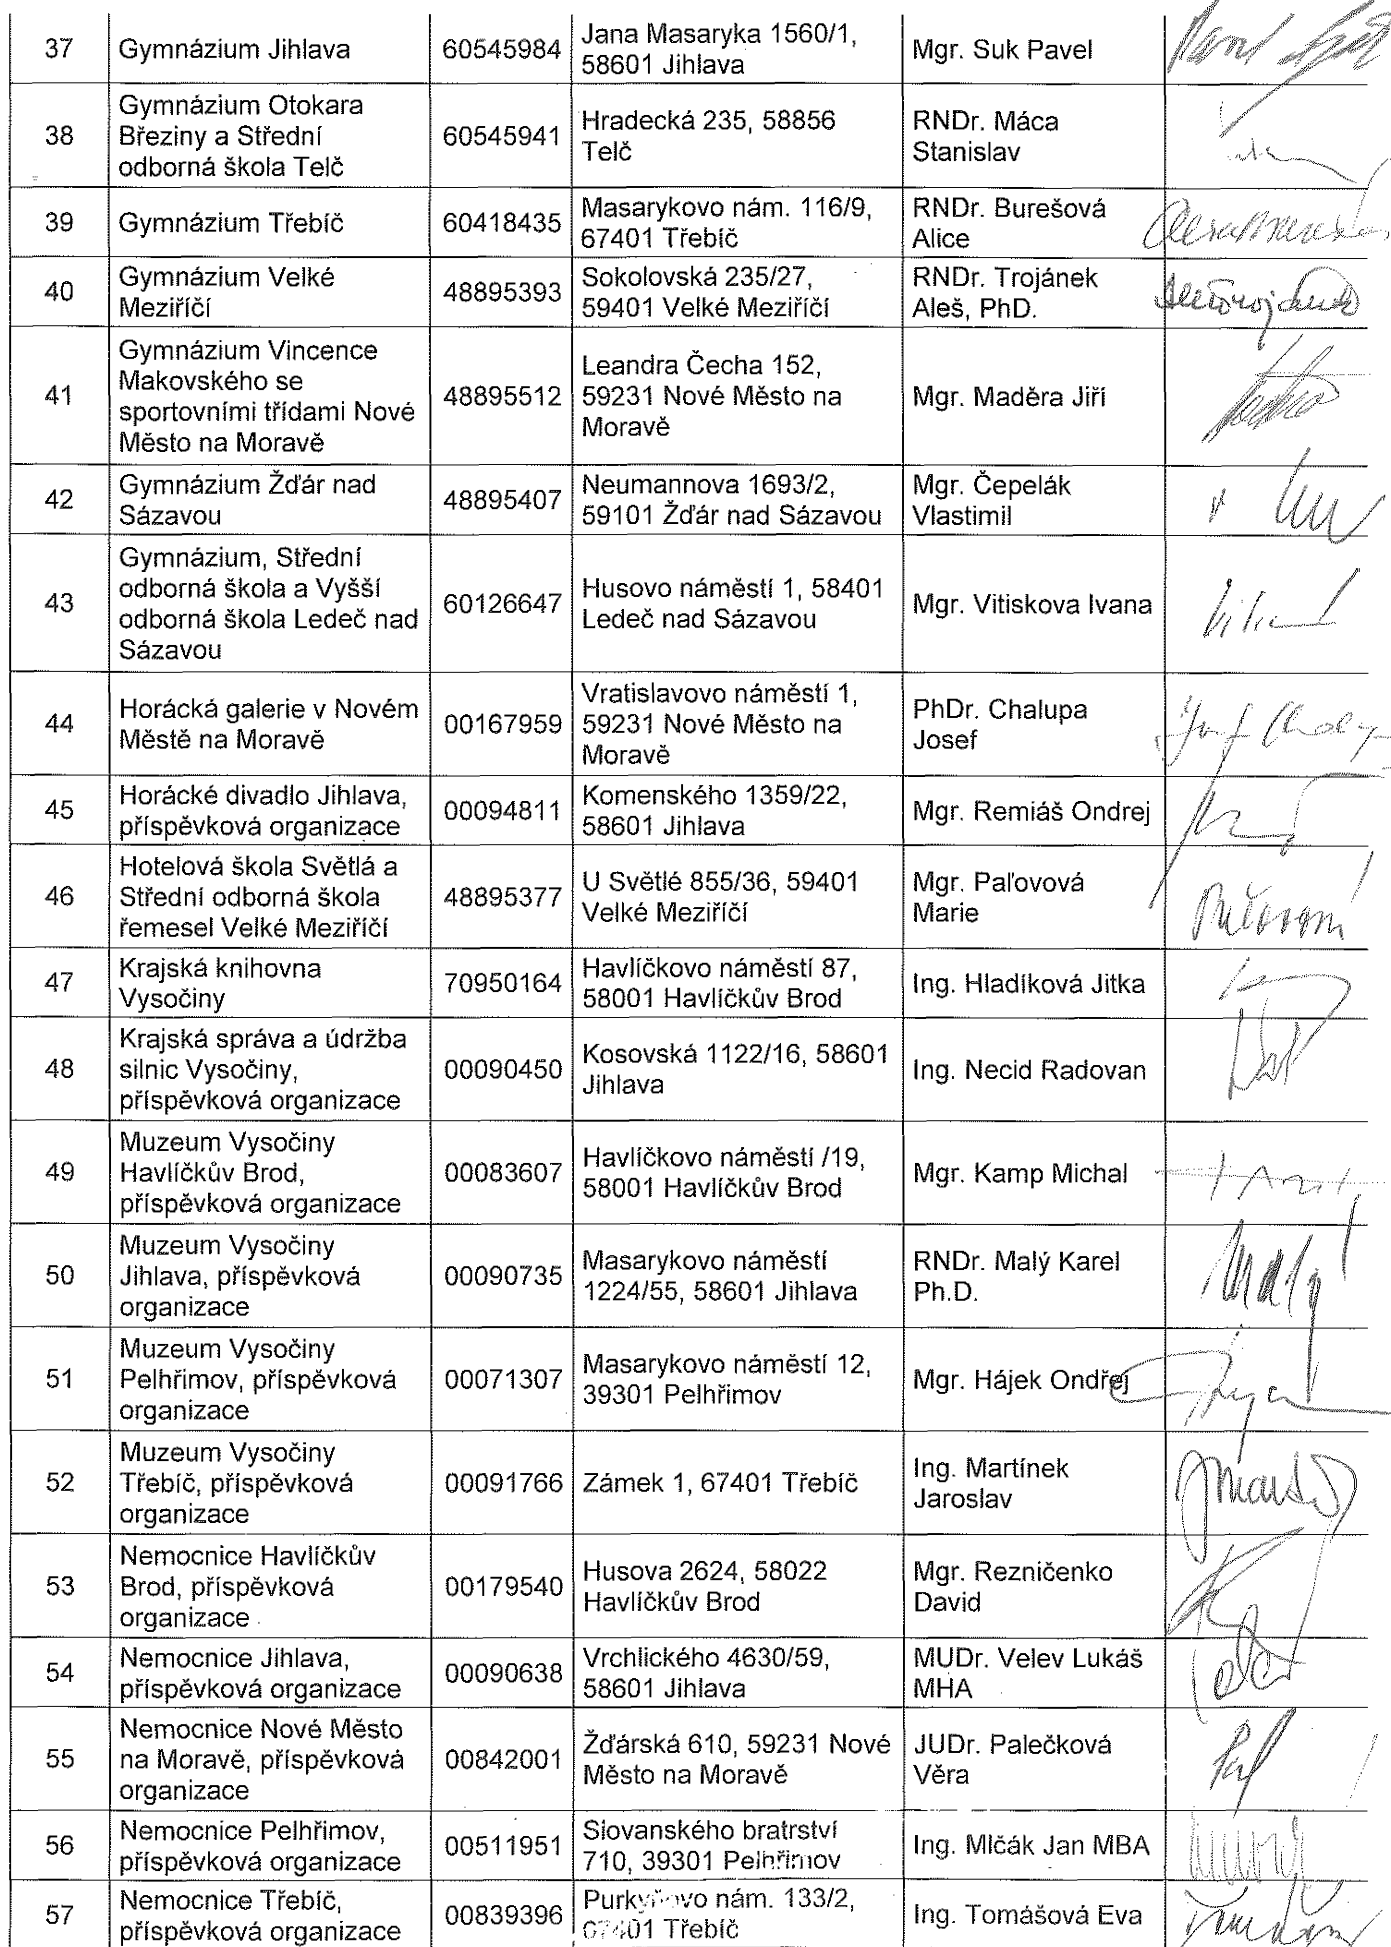 37 Gymnázium Jihlava 60545984 Jana Masaryka 1560/1, Mgr. Suk Pavel
58601 Jihlava
38 Gymnázium Otokara
Březiny a Střední
odborná škola Telč 60545941 Hradecká 235, 58856
Telč RNDr. Máca
Stanislav
39 Gymnázium Třebíč 60418435 Masarykovo nám. 116/9,
67401 Třebíč RNDr. Burešová
Alice
40 Gymnázium Velké
Meziříčí 48895393 Sokolovská 235/27,
59401 Velké Meziříčí RNDr. Trojánek
Aleš, PhD.
41 Gymnázium Vincence
Makovského se
sportovními třídami Nové
Město na Moravě 48895512 Leandra Čecha 152,
59231 Nové Město na
Moravě Mgr. Maděra Jiří
42 Gymnázium Žďár nad
Sázavou 48895407 Neumannova 1693/2,
59101 Žďár nad Sázavou Mgr. Čepelák
Vlastimil
43 Gymnázium, Střední
odborná škola a Vyšší
odborná škola Ledeč nad
Sázavou 60126647 Husovo náměstí 1, 58401
Ledeč nad Sázavou Mgr. Vitiskova Ivana
44 Horácká galerie v Novém
Městě na Moravě 00167959 Vratislavovo náměstí 1,
59231 Nové Město na
Moravě PhDr. Chalupa
Josef
45 Horácké divadlo Jihlava,
příspěvková organizace 00094811 Komenského 1359/22,
58601 Jihlava Mgr. Remiáš Ondrej
46 Hotelová škola Světlá a
Střední odborná škola
řemesel Velké Meziříčí 48895377 U Světlé 855/36, 59401
Velké Meziříčí Mgr. Paľovová
Marie
47 Krajská knihovna
Vysočiny 70950164 Havlíčkovo náměstí 87,
58001 Havlíčkův Brod Ing. Hladíková Jitka
48 Krajská správa a údržba
silnic Vysočiny,
příspěvková organizace 00090450 Kosovská 1122/16, 58601
Jihlava Ing. Necid Radovan
49 Muzeum Vysočiny
Havlíčkův Brod,
příspěvková organizace 00083607 Havlíčkovo náměstí /19,
58001 Havlíčkův Brod Mgr. Kamp Michal
50 Muzeum Vysočiny
Jihlava, příspěvková
organizace 00090735 Masarykovo náměstí
1224/55, 58601 Jihlava RNDr. Malý Karel
Ph.D.
51 Muzeum Vysočiny
Pelhřimov, příspěvková
organizace 00071307 Masarykovo náměstí 12,
39301 Pelhřimov Mgr. Hájek Ondřej
52 Muzeum Vysočiny
Třebíč, příspěvková
organizace 00091766 Zámek 1, 67401 Třebíč Ing. Martínek
Jaroslav
53 Nemocnice Havlíčkův
Brod, příspěvková
organizace 00179540 Husova 2624, 58022
Havlíčkův Brod Mgr. Rezničenko
David
54 Nemocnice Jihlava,
příspěvková organizace 00090638 Vrchlického 4630/59,
58601 Jihlava MUDr. Velev Lukáš
MHA
55 Nemocnice Nové Město
na Moravě, příspěvková
organizace 00842001 Žďárská 610, 59231 Nové
Město na Moravě JUDr. Palečková
Věra
56 Nemocnice Pelhřimov,
příspěvková organizace 00511951 Slovanského bratrství
710, 39301 Pelhřimov Ing. Mlčák Jan MBA
57 Nemocnice Třebíč,
příspěvková organizace 00839396 Purkyňovo nám. 133/2,
67401 Třebíč Ing. Tomášová Eva